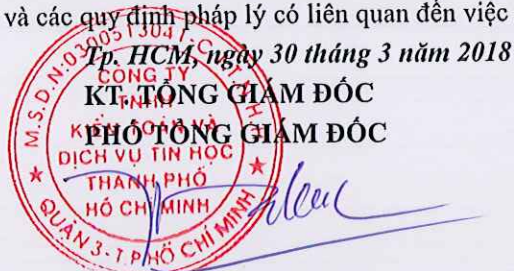 và các quy định pháp lý có liên quan đến việc
Tp. HCM, ngày 30 tháng 3 năm 2018
KT. TỔNG GIÁM ĐỐC
PHÓ TỔNG GIÁM ĐỐC
M.S.D.N:0300513041-C.T.T.N.H.H
CÔNG TY
TNHH
KIỂM TOÁN VÀ
DỊCH VỤ TIN HỌC
THÀNH PHỐ
HỒ CHÍ MINH
QUẬN 3-T.P HỒ CHÍ MINH